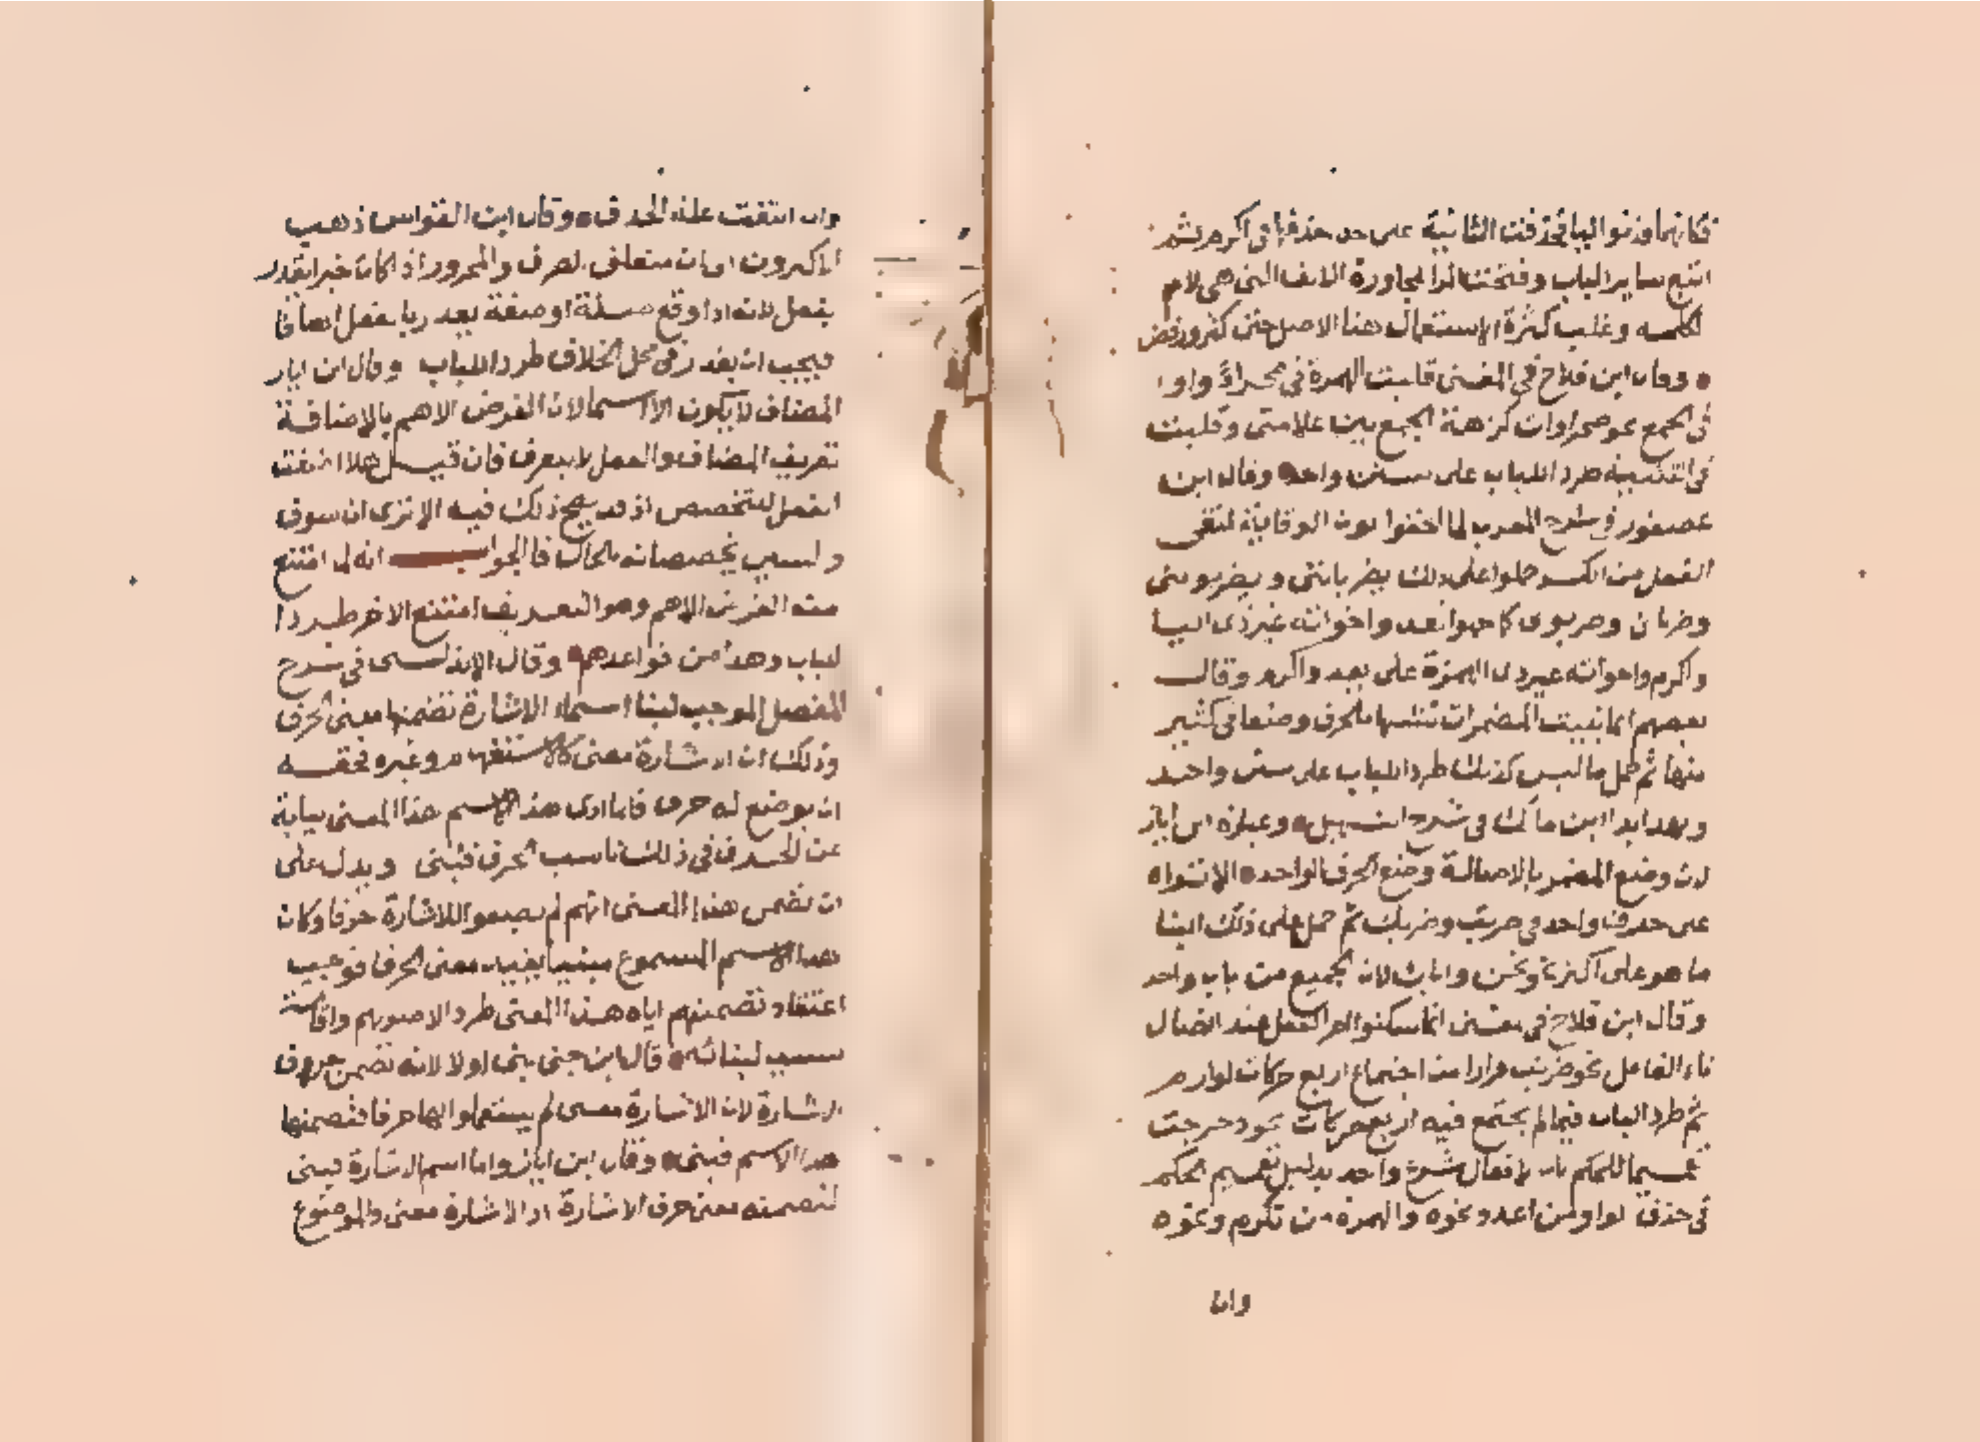 فكانهما وزنوا اليا فحذفت الثانية على حد حذفها في اكرم ثم
اتبع ساير الباب وفتحت الرا لمجاورة الالف التي هي لام
الكلمة وغلب كثرة الاستعمال هذا الاصل حتى كثر ورفض
وقال ابن فلاح في المغنى قلبت الهمزة في صحراء واوا
في الجمع نحو صحراوات كراهة الجمع بين علامتى وقلبت
في التثنية طردا للباب على سنن واحد وقال ابن
عصفور في شرح المقرب لما لحقوا نون الوقاية لتقى
الفعل من الكسر حملوا على ذلك يضربانني ويضربونني
وضربان وضربوني كما حملوا نعد واخواته غير ذى اليا
واكرم واخواته غير ذى الهمزة على يعد واكرم وقال
بعضهم انما بنيت المضمرات لشبهها بالحرف وضعا في كثير
منها ثم حمل ما ليس كذلك طردا للباب على سنن واحد
وبهذا بدا ابن مالك في شرح التسهيل وعبارة ابن اياز
لان وضع المضمر بالاصالة وضع الحرف الواحد الا تراه
على حرف واحد في ضربت وضربك ثم حمل على ذلك البنا
ما هو على اكثر نحو نحن وانا لان الجميع من باب واحد
وقال ابن فلاح في مغنى انما سكنوا اخر الفعل عند اتصال
تاء الفاعل نحو ضربت فرارا من اجتماع اربع حركات لوازم
ثم طرد الباب فيما لم يجتمع فيه اربع حركات نحو دحرجت
تعميما للحكم لان الافعال شرع واحد بدليل تعميم الحكم
في حذف الواو من اعد ونحوه والهمزة من تكرم ونحوه
وان
وان انتفت علة الحذف وقال ابن القواس ذهب
الاكثرون الى ان متعلق الظرف والمجرور اذا كان خبرا يقدر
بفعل لانه اذا وقع صلة او صفة يقدر بالفعل اتفاقا
فيجب ان يقدر في محل الخلاف طردا للباب وقال ابن اياز
المضاف لا يكون الا اسما لان الغرض الاهم بالاضافة
تعريف المضاف والفعل لا يتعرف فان قيل هلا اضفت
الفعل للتخصص اذ قد يصح ذلك فيه الا ترى ان سوف
والسين يخصصانه بالحال فالجواب انه لما امتنع
منه الغرض الاهم وهو التعريف امتنع الاخر طردا
للباب وهذا من قواعدهم وقال الاندلسى في شرح
المفصل الموجب لبنا اسماء الاشارة تضمنها معنى الحرف
وذلك ان الاشارة معنى كالاستفهام وغيره فحقه
ان يوضع له حرف فلما ادى هذا الاسم هذا المعنى نيابة
عن الحرف في ذلك ناسب الحرف فبنى ويدل على
ان تضمن هذا المعنى انهم لم يضعوا للاشارة حرفا وكان
هذا الاسم المسموع مبنيا يفيد معنى الحرف فوجب
اعتقاد تضمينهم اياه هذا المعنى طردا لاصولهم واقامة
سبب لبنائه قال ابن جنى بنى اولا لانه تضمن حرف
الاشارة لان الاشارة معنى لم يستعملوا لها حرفا فتضمنها
هذا الاسم فبنى وقال ابن اياز واما اسم الاشارة فبنى
لتضمنه معنى حرف الاشارة اذ الاشارة معنى والموضوع